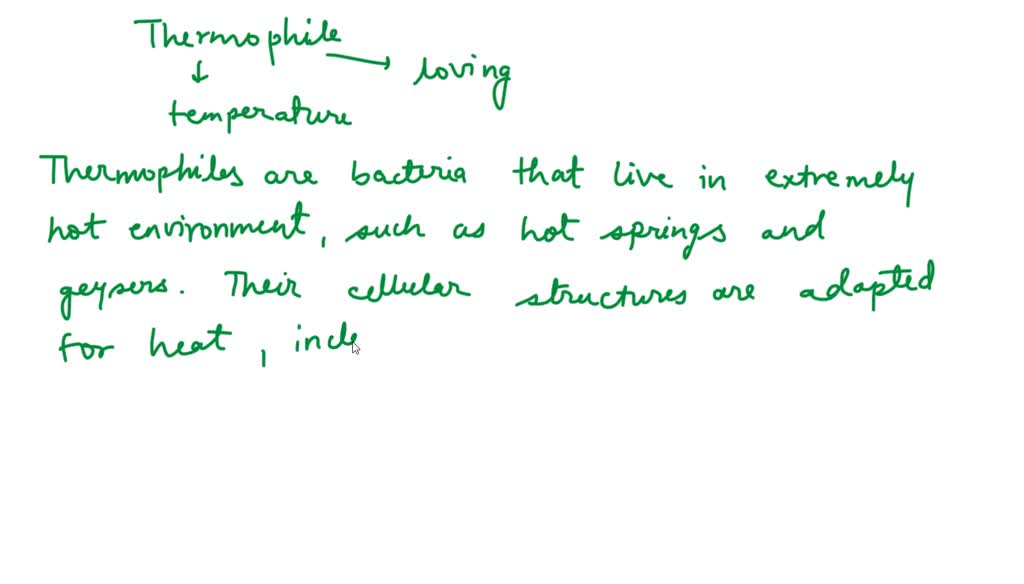 Thermophile
loving
temperature
Thermophiles are bacteria that live in extremely
hot environment, such as hot springs and
geysers. Their cellular structures are adapted
for heat, incle